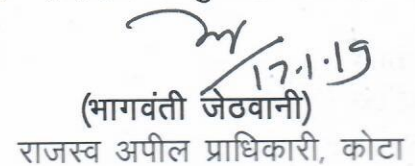 17.1.19
(भागवंती जेठवानी)
राजस्व अपील प्राधिकारी, कोटा